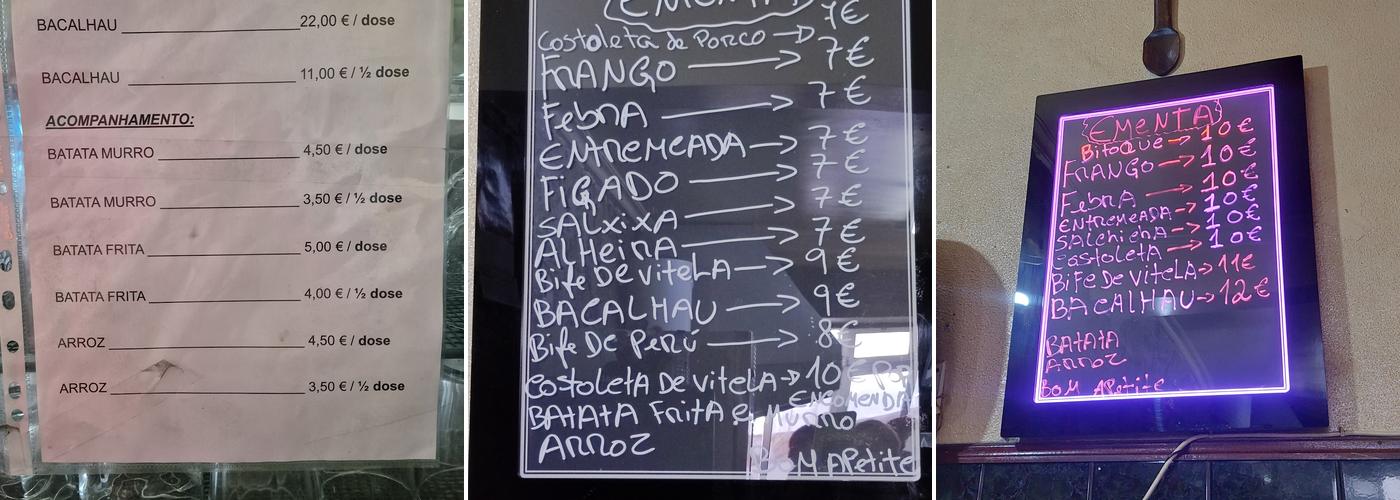 BACALHAU 22,00 € / dose
BACALHAU 11,00 € / ½ dose
ACOMPANHAMENTO:
BATATA MURRO 4,50 € / dose
BATATA MURRO 3,50 € / ½ dose
BATATA FRITA 5,00 € / dose
BATATA FRITA 4,00 € / ½ dose
ARROZ 4,50 € / dose
ARROZ 3,50 € / ½ dose
EMENTA
Costoleta de Porco → 7€
FRANGO → 7€
FebrA → 7€
ENTREMEADA → 7€
FIGADO → 7€
SALXIXA → 7€
ALHEIRA → 7€
Bife De vitelA → 9€
BACALHAU → 9€
Bife De Perú → 8€
CostoletA De vitelA → 10€ Por ENCOMENDA
BATATA FritA e MURRO
ARROZ
BOM APetite
EMENTA
BitoQue → 10€
FRANGO → 10€
FebrA → 10€
ENTREMEADA → 10€
SAlchichA → 10€
Costoleta → 10€
Bife De vitelA → 11€
BACALHAU → 12€
BATATA
ARROZ
BOM APetite